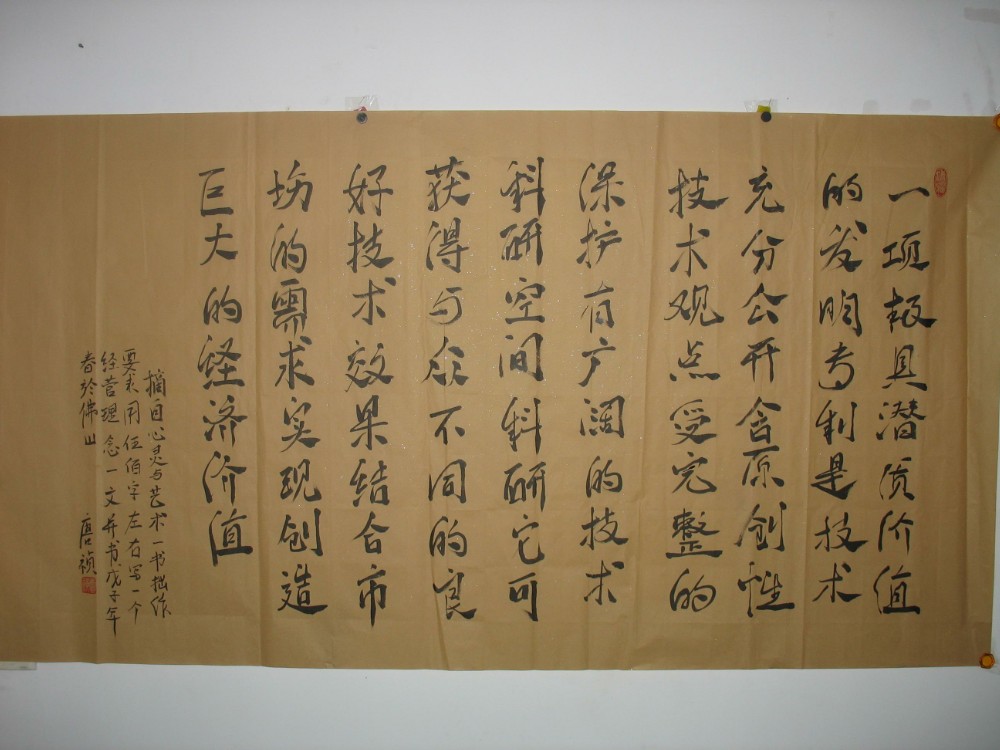 一项极具潜质价值
的发明专利是技术
充分公开含原创性
技术观点受完整的
保护有广阔的技术
科研空间科研它可
获得与众不同的良
好技术效果结合市
场的需求实现创造
巨大的经济价值
摘自心灵与艺术一书拙作
要求用伍佰字左右写一个
经营理念一文并书戊子年
春於佛山
唐祯